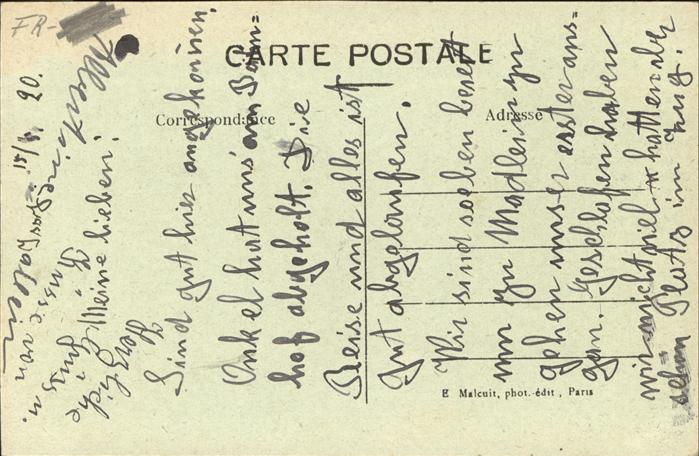 FR-
CARTE POSTALE
Correspondance
Adresse
15/8. 20.
Meine Lieben!
Sind gut hier angekommen,
Onkel hat uns am Bahn=
hof abgeholt. Die
Reise und alles ist
gut abgelaufen.
Wir sind soeben bereit
um zu Madlein zu
gehen unser erster aus-
gan. Geschlafen haben
wir nicht viel hatten aber
schön Platz im Zug.
E Malcuit, phot.-édit, Paris